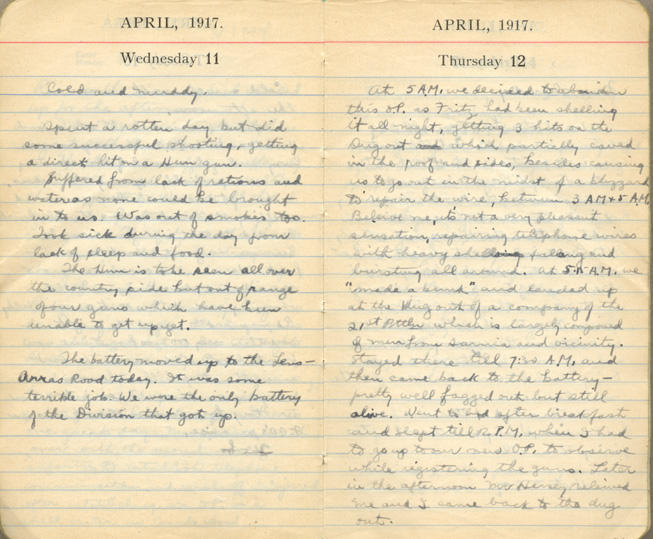 APRIL, 1917.
Wednesday 11
Cold and muddy.
Spent a rotten day but did
some successful shooting, getting
a direct hit on a Hun gun.
Suffered from lack of rations and
water as none could be brought
in to us. Was out of smokes too.
Took sick during the day from
lack of sleep and food.
The Hun is to be seen all over
the country side but out of range
of our guns which have been
unable to get up yet.
The battery moved up to the Lens-
Arras Road today. It was some
terrible job. We were the only battery
of the Division that got up.
APRIL, 1917.
Thursday 12
At 5 A.M. we decided to abandon
this O.P. as Fritz had been shelling
it all night, getting 3 hits on the
Dug out and which partially caved
in the roof and sides, besides causing
us to go out in the midst of a blizzard
to repair the wire, between 3 AM & 5 A.M.
Believe me, its not a very pleasant
sensation, repairing telephone wires
with heavy shells falling and
bursting all around. At 5.15 A.M. we
"made a bunk" and landed up
at the dug out of a company of the
21st Bttn which is largely composed
of men from Sarnia and vicinity.
Stayed there till 7:30 A.M. and
then came back to the battery-
pretty well fagged out but still
alive. Went to bed after breakfast
and slept till 2 P.M. when I had
to go up to our O.P. to observe
while registering the guns. Later
in the afternoon Mr relieved
me and I came back to the dug
out.